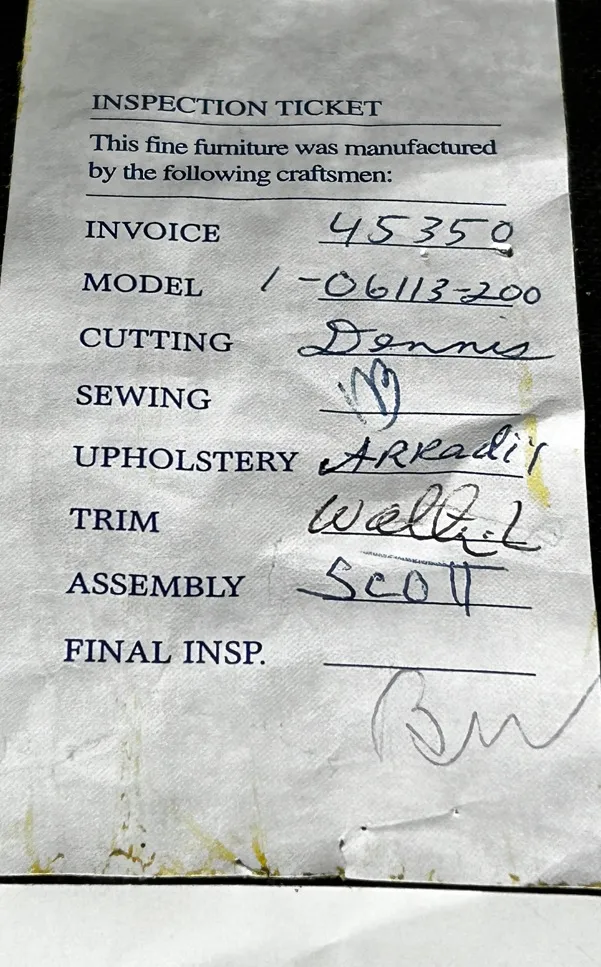 INSPECTION TICKET
This fine furniture was manufactured
by the following craftsmen:
INVOICE 45350
MODEL 1-06113-200
CUTTING Dennis
SEWING
UPHOLSTERY ARKadiy
TRIM
ASSEMBLY SCOTT
FINAL INSP.